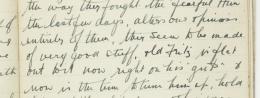 the way they fought the fearful Hun
the last few days, alters our opinions
entirely of them, they seem to be made
of very good stuff, old Fritz is flat
out but now right on his
now is the time to him up, hold